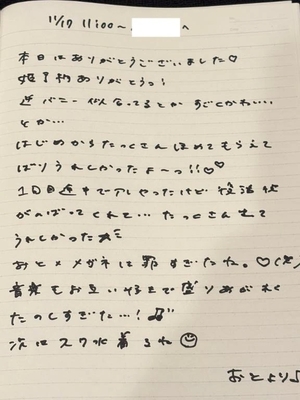 11/17 11:00〜 へ
本日はありがとうございました♡
差し入れありがとうっ!
逆バニー似合ってるとかすごくかわいい…
とか…
はじめからたっくさんほめてもらえて
ばりうれしかったよーっ!!♡♡
1回目途中で
がんばってくれて… たっくさん
うれしかった
おとメガネは罪すぎたね。♡(笑)
音楽もお互い好きで盛りあがれて
たのしすぎた…!♪
次はスク水着るね☺
おとより♪